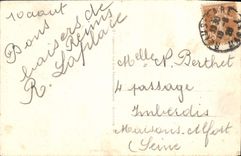 10 aout
Bons
baisers de
Reims
R. Laplace
Melle P. Berthet
4 passage
Imberdis
Maisons-Alfort
(Seine)